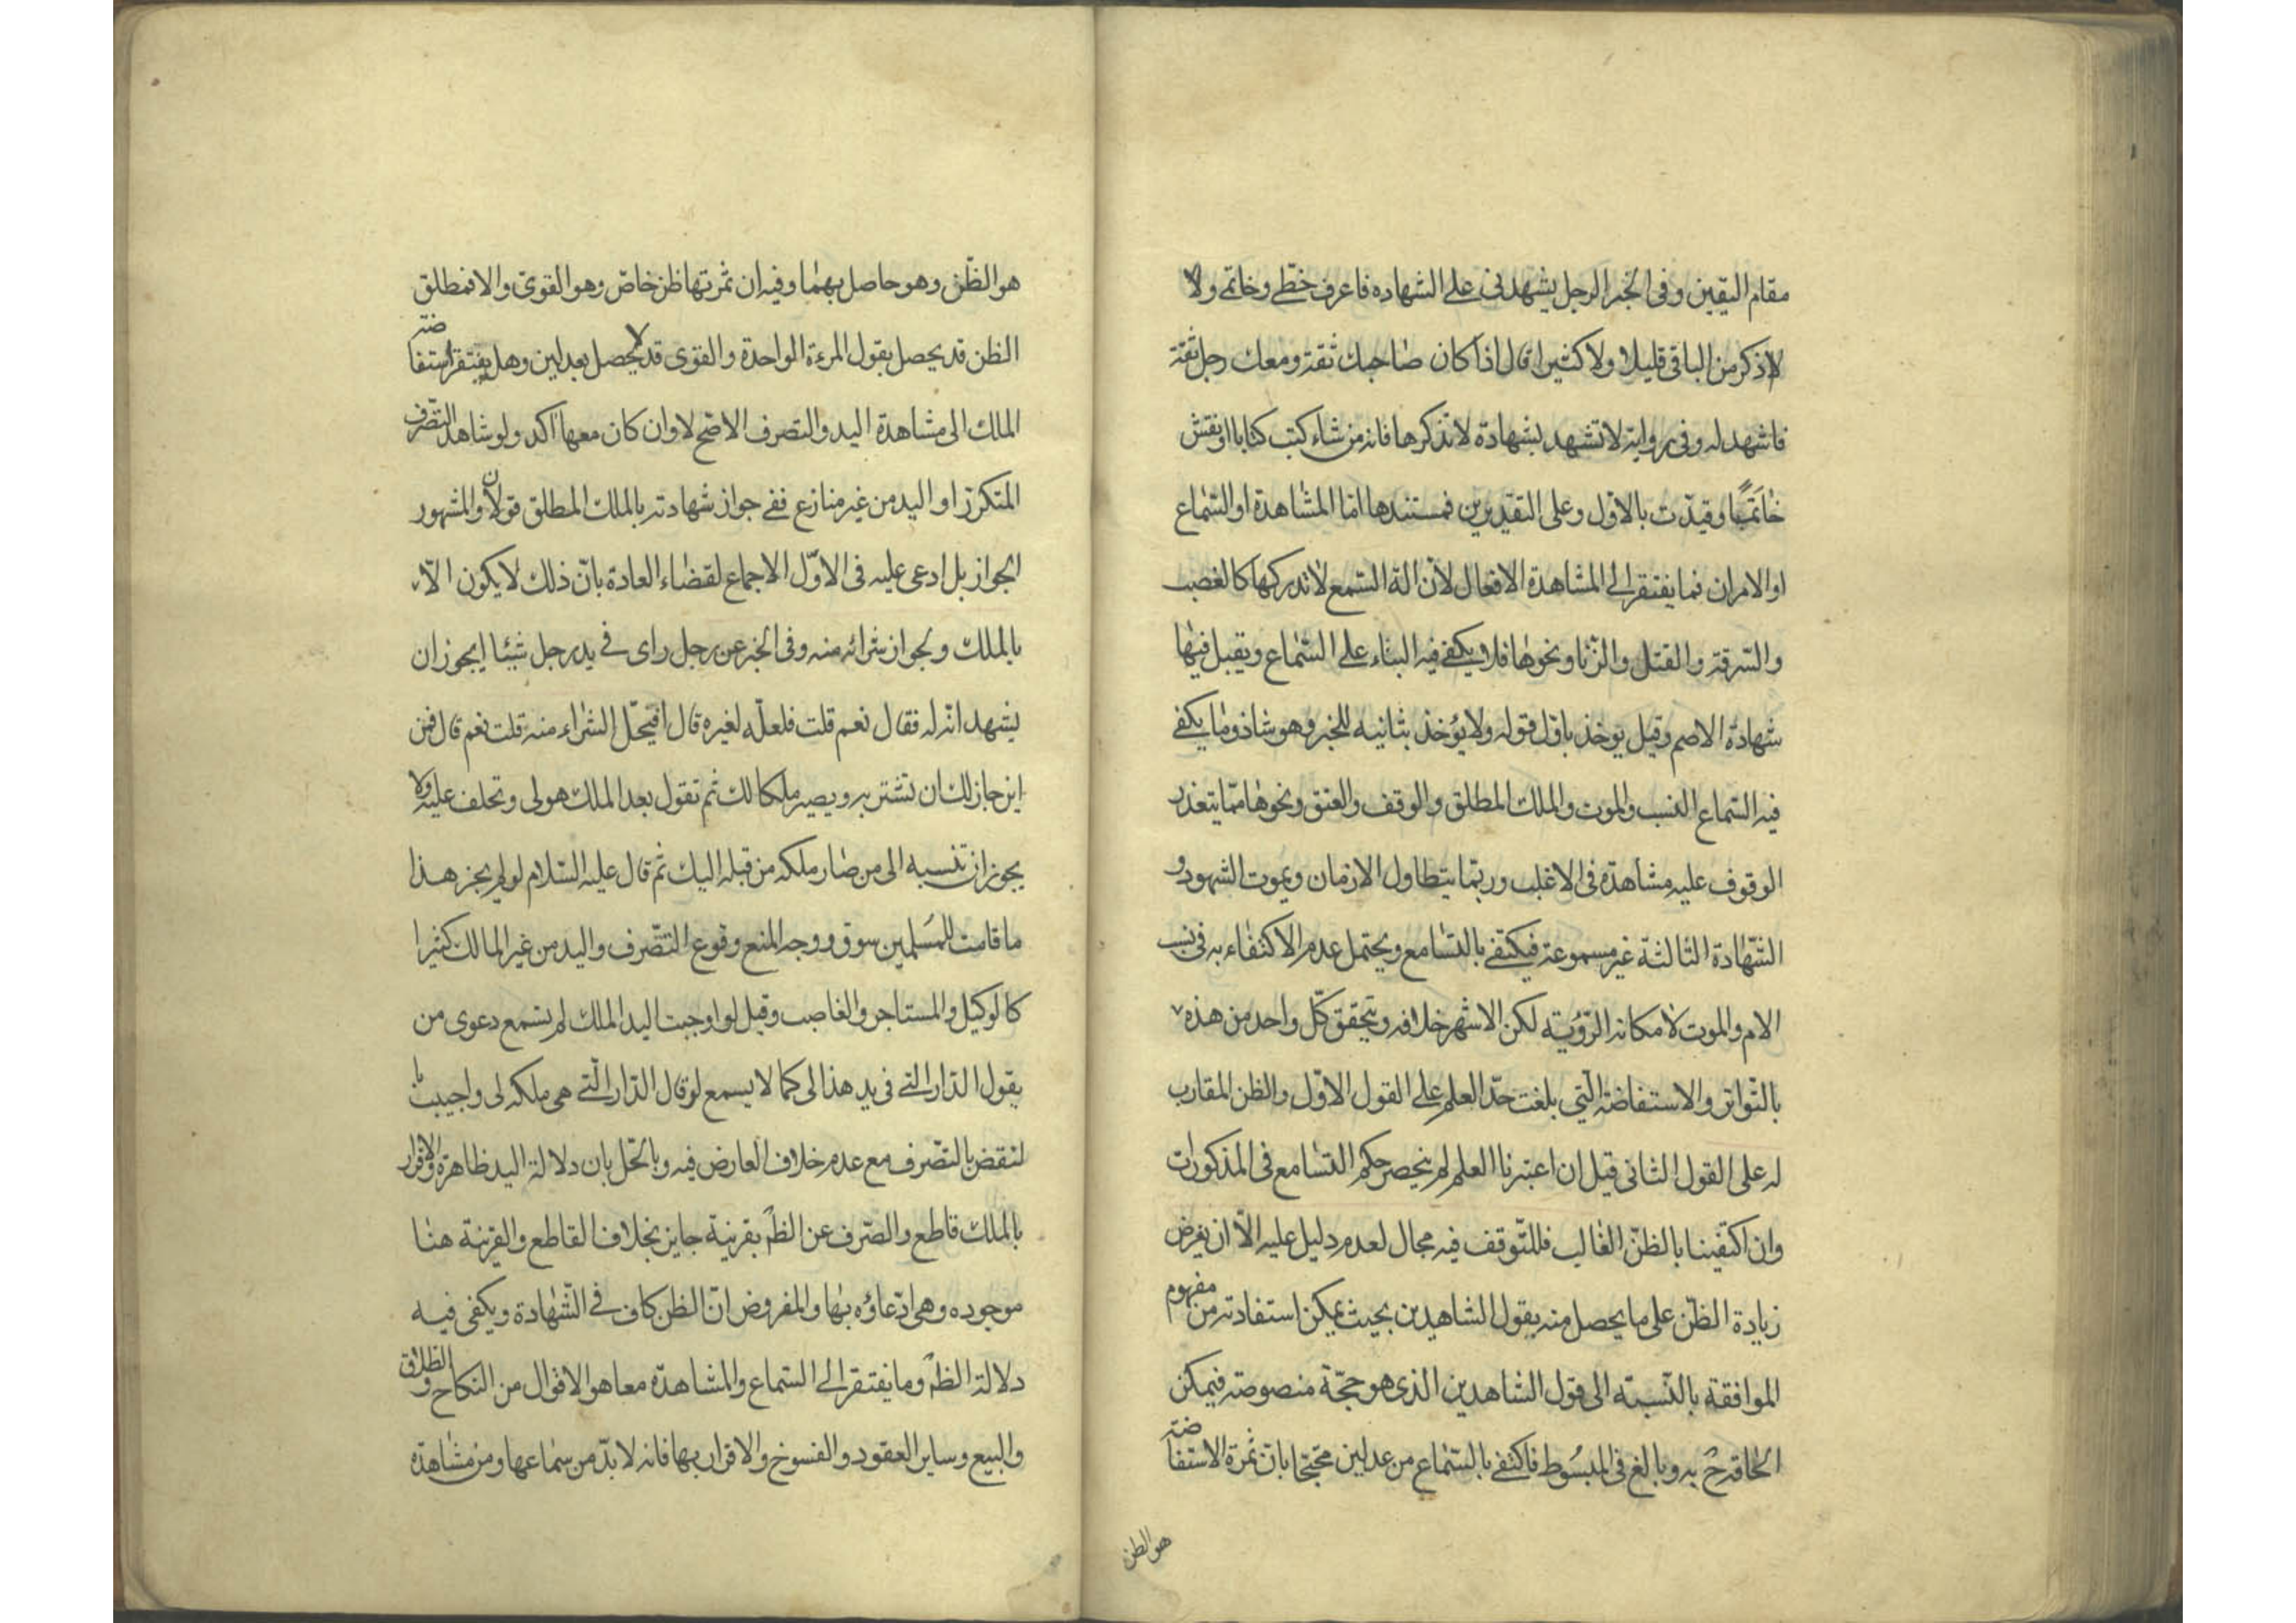 مقام اليقين وفى الخبر الرجل يشهدنى على الشهاده فاعرف خطى وخاتمى ولا
لاذكر من الباقى قليلا ولا كثيرا قال اذا كان صاحبك ثقة ومعك رجل ثقة
فاشهد له وفى رواية لا تشهد بشهادة لا تذكرها فانه من شاء كتب كتابا او نقش
خاتما وقيدت بالاول وعلى التقديرين فمستندها اما المشاهدة او السماع
او الامران فما يفتقر الى المشاهدة الافعال لان الة السمع لا تدركها كالغصب
والسرقة والقتل والزنا ونحوها فلا يكفى فيه البناء على السماع ويقبل فيها
شهادة الاصم وقيل يوخذ باول قوله ولا يؤخذ بثانيه للخبر وهو شاذ وما يكفى
فيه السماع النسب والموت والملك المطلق والوقف والعتق ونحوها مما يتعذر
الوقوف عليه مشاهدة فى الاغلب وربما يتطاول الازمان ويموت الشهود و
الشهادة الثالثة غير مسموعة فيكتفى بالتسامع ويحتمل عدم الاكتفاء به فى نسب
الام والموت لامكانه الرؤية لكن الاشهر خلافه ويتحقق كل واحد من هذه
بالتواتر والاستفاضة التى بلغت حد العلم على القول الاول والظن المقارب
له على القول الثانى قيل ان اعتبرنا العلم لم ينحصر حكم التسامع فى المذكورات
وان اكتفينا بالظن الغالب فللتوقف فيه مجال لعدم دليل عليه الا ان يفرض
زيادة الظن على ما يحصل منه بقول الشاهدين بحيث يمكن استفادته من مفهوم
الموافقة بالنسبة الى قول الشاهدين الذى هو حجة منصوصة فيمكن
الحاقه ح به وبالغ فى المبسوط فاكتفى بالسماع من عدلين محتجا بان ثمرة الاستفاضة
هو الظن
هو الظن وهو حاصل بهما وفيه ان ثمرتها ظن خاص وهو القوى والا فمطلق
الظن قد يحصل بقول المرءة الواحدة والقوى قد لا يحصل بعدلين وهل يفتقر استفاضة
الملك الى مشاهدة اليد والتصرف الاصح لا وان كان معها اكد ولو شاهد التصرف
المتكرر او اليد من غير منازع ففى جواز شهادته بالملك المطلق قولان والمشهور
الجواز بل ادعى عليه فى الاول الاجماع لقضاء العادة بان ذلك لا يكون الا
بالملك ولجواز شرائه منه وفى الخبر عن رجل راى فى يد رجل شيئا ايجوز ان
يشهد انه له فقال نعم قلت فلعله لغيره قال افيحل الشراء منه قلت نعم قال فمن
اين جاز لك ان تشتريه ويصير ملكا لك ثم تقول بعد الملك هو لى وتحلف عليه ولا
يجوز ان تنسبه الى من صار ملكه من قبله اليك ثم قال عليه السلام لو لم يجز هذا
ما قامت للمسلمين سوق ووجه المنع وقوع التصرف واليد من غير المالك كثيرا
كالوكيل والمستاجر والغاصب وقيل لو اوجبت اليد الملك لم يسمع دعوى من
يقول الدار التى فى يد هذا لى كما لا يسمع لو قال الدار التى هى ملكه لى واجيبت با
لنقض بالتصرف مع عدم خلاف العارض فيه وبالحل بان دلالة اليد ظاهرة والاقرار
بالملك قاطع والصرف عن الظم بقرينة جايز بخلاف القاطع والقرينة هنا
موجوده وهى ادعاؤه بها والمفروض ان الظن كاف فى الشهادة ويكفى فيه
دلالة الظم وما يفتقر الى السماع والمشاهدة معا هو الاقوال من النكاح والطلاق
والبيع وساير العقود والفسوخ والاقرار بها فانه لا بد من سماعها ومن مشاهدة